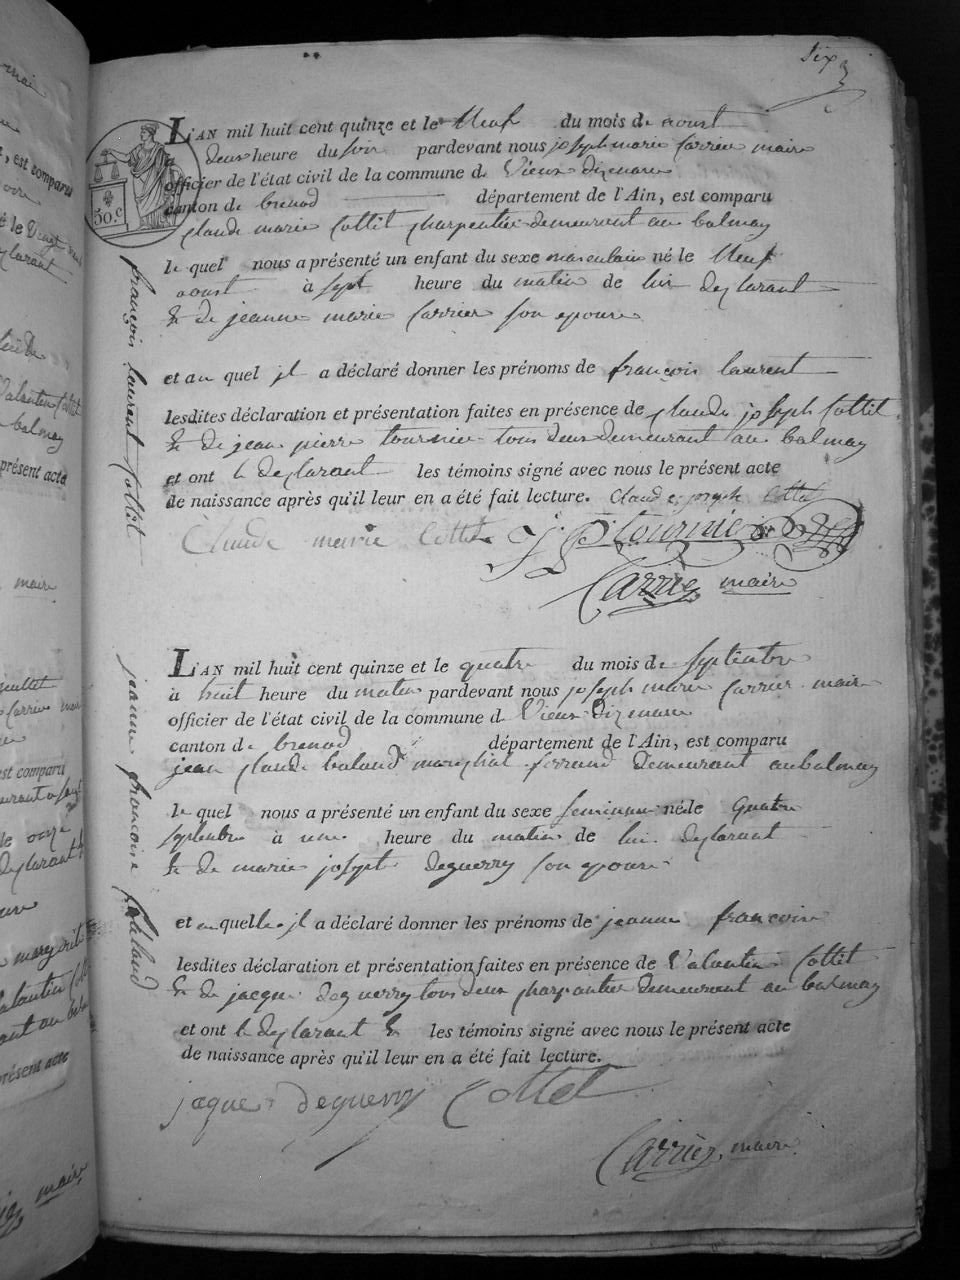 six
L'AN mil huit cent quinze et le Neuf du mois de aoust
à deux heure du soir pardevant nous joseph marie Carrier maire
officier de l'état civil de la commune de Vieux dizenave
canton de brenod département de l'Ain, est comparu
Claude marie Cottet charpentier demeurant au balmay
le quel nous a présenté un enfant du sexe masculain né le Neuf
aoust à sept heure du matin de lui declarant
& de jeanne marie Carrier son epouse
et au quel il a déclaré donner les prénoms de françois laurent
lesdites déclaration et présentation faites en présence de Claude joseph Cottet
& de jean pierre tournier tous deux demeurant au balmay
et ont le declarant les témoins signé avec nous le présent acte
de naissance après qu'il leur en a été fait lecture. Claude joseph Cottet
Claude marie Cottet J P tournier
Carrier maire
30.c
françois laurent Cottet
L'AN mil huit cent quinze et le quatre du mois de septembre
à huit heure du matin pardevant nous joseph marie Carrier maire
officier de l'état civil de la commune de Vieux dizenave
canton de brenod département de l'Ain, est comparu
jean Claude baland marechal ferrand demeurant au balmay
le quel nous a présenté un enfant du sexe feminin née le Quatre
septembre à une heure du matin de lui declarant
& de marie josept deguerry son epouse
et au quelle il a déclaré donner les prénoms de jeanne francoise
lesdites déclaration et présentation faites en présence de Valentin Cottet
& de jacque deguerry tous deux charpentier demeurant au balmay
et ont le declarant & les témoins signé avec nous le présent acte
de naissance après qu'il leur en a été fait lecture.
jaques deguerry Cottet
Carrier maire
jeanne francoise baland